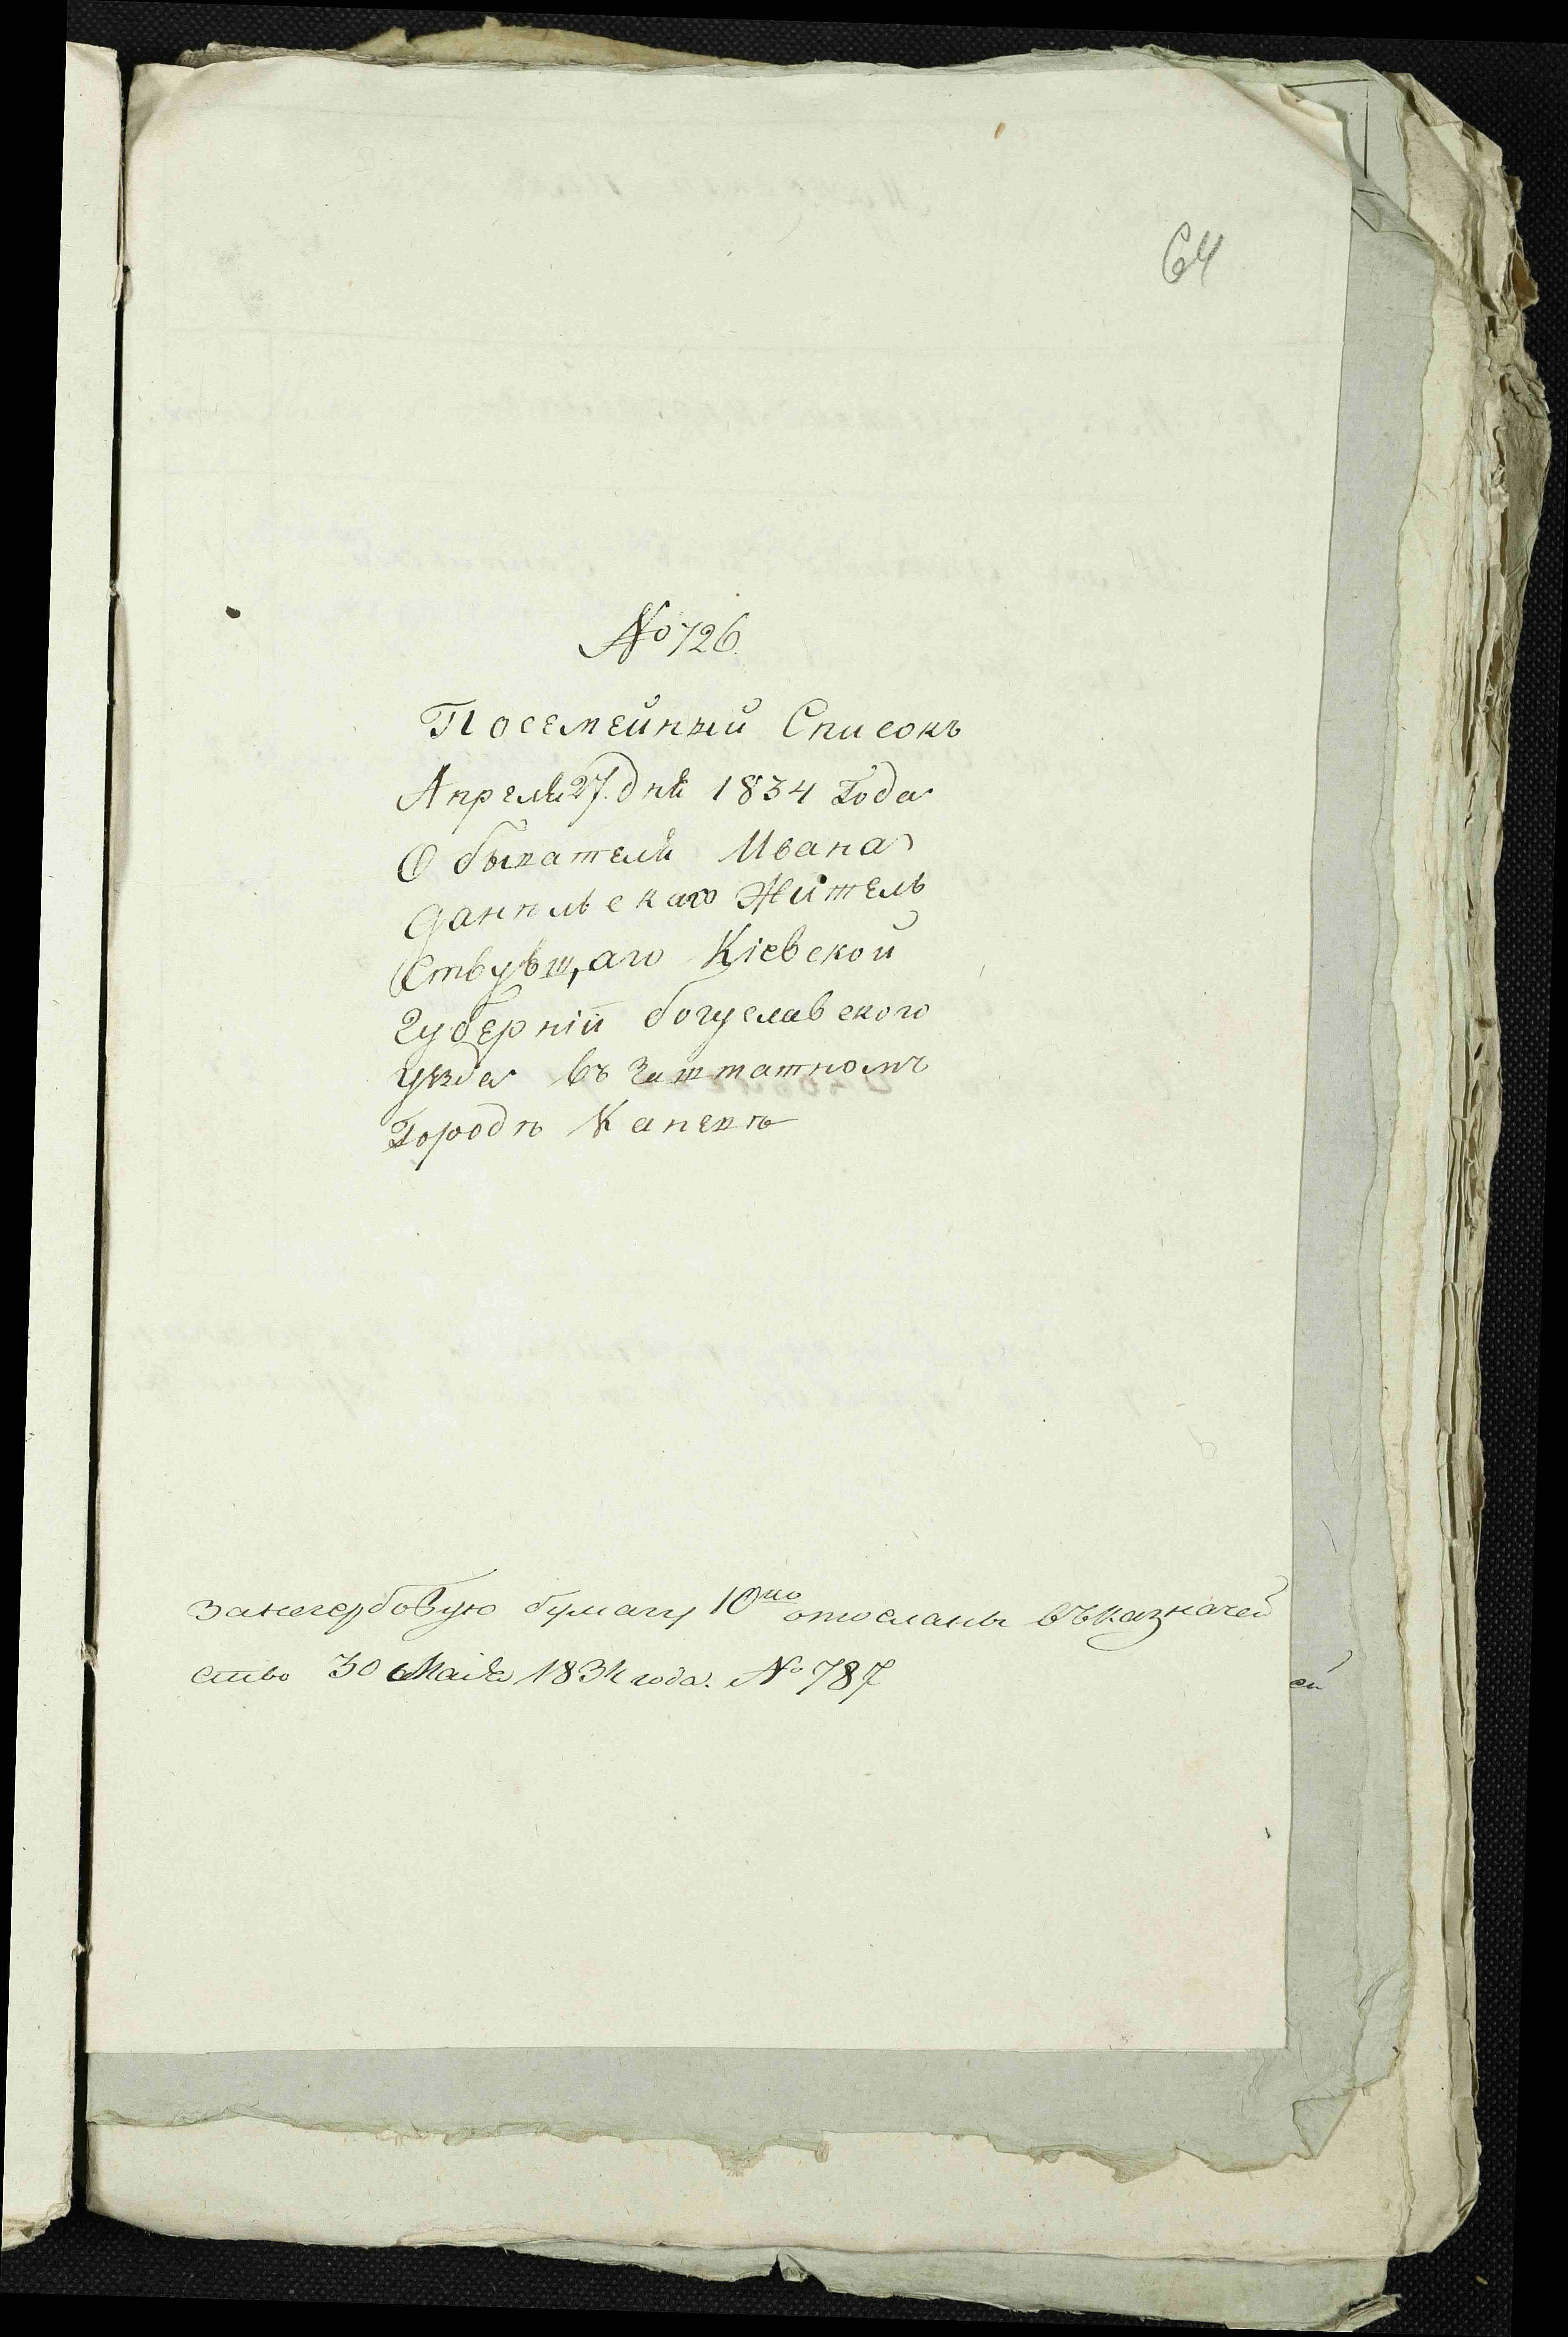 64
№ 726.
Посемейный Списокъ
Апреля 27. дня 1834 Года
Обывателя Ивана
Данильскаго Житель
Ствувш,аго Кіевской
Губерніи богуславского
уѣзда въ Заштатномъ
Городѣ Каневѣ
За негербовую бумагу 10 отосланы въ казначей
ство 30 Маія 1834 года. № 787